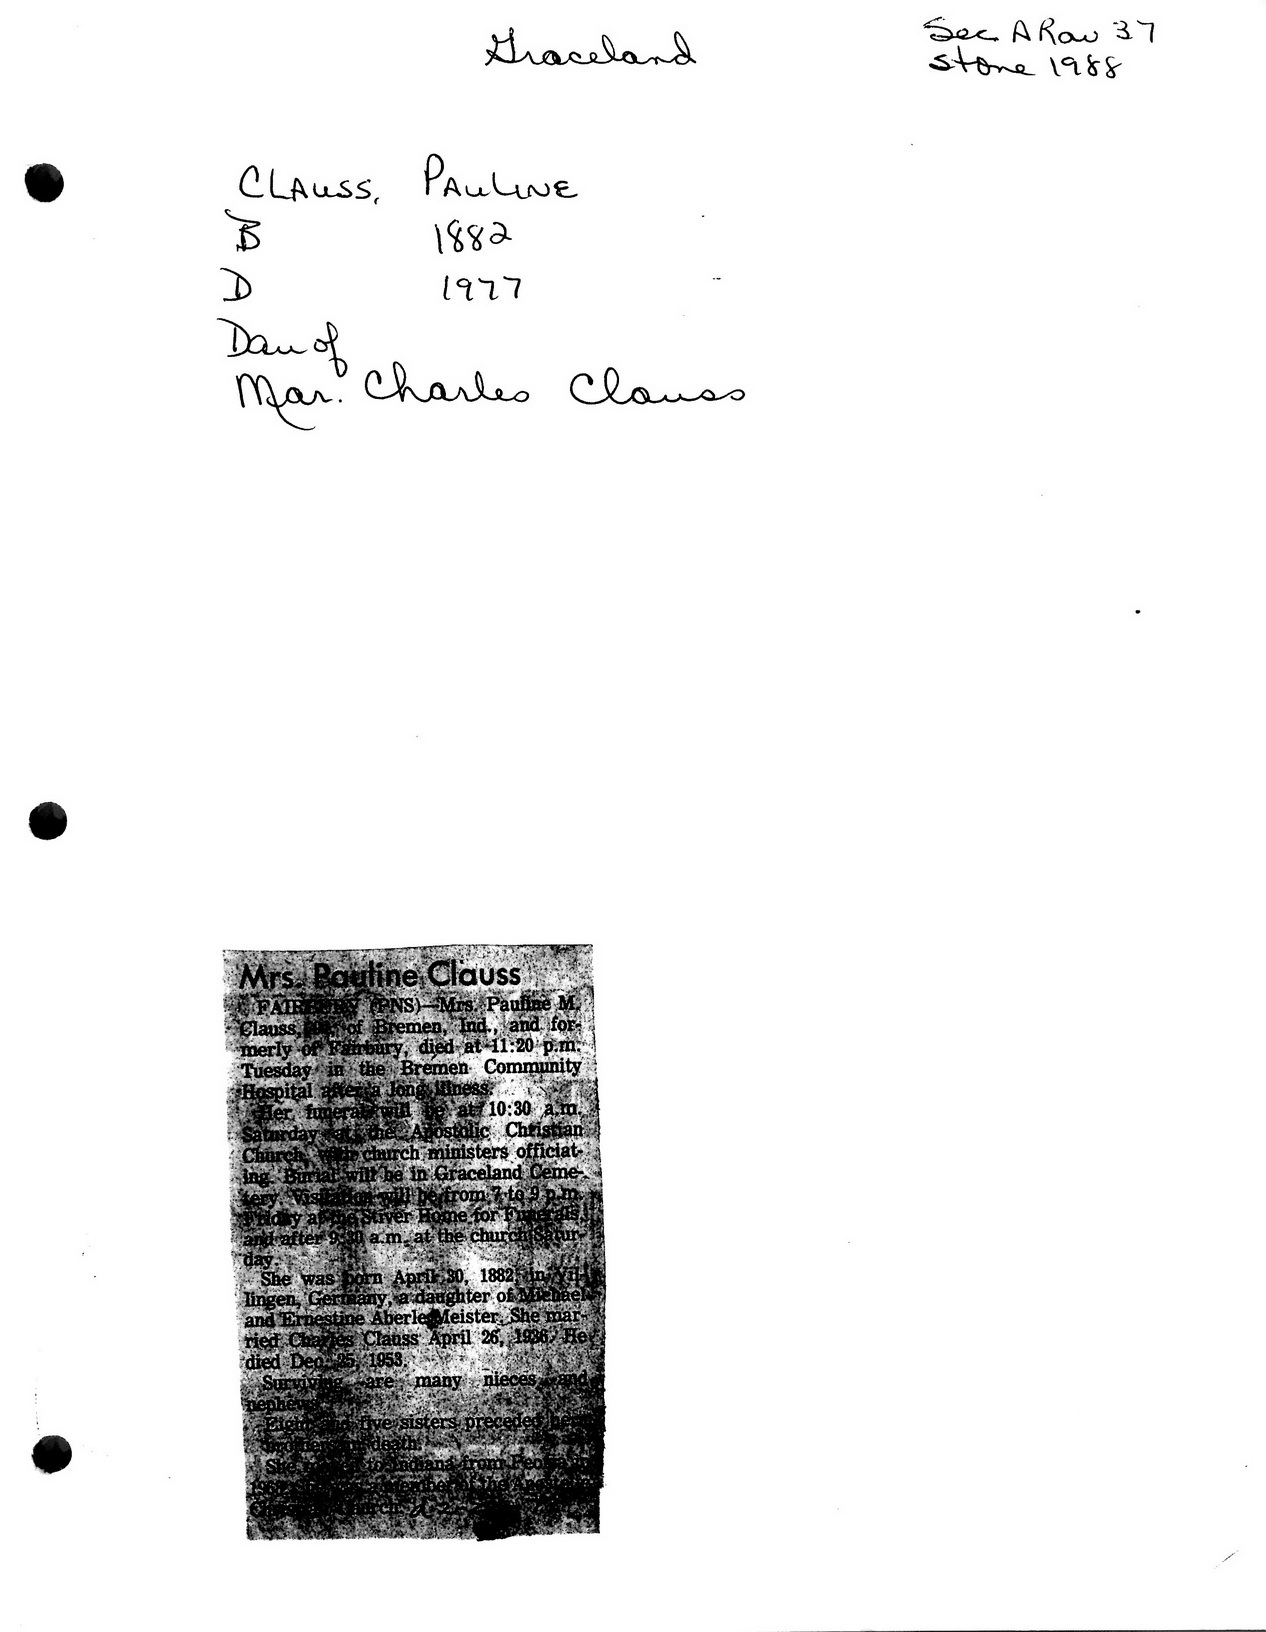 Graceland
Sec A Row 37
Stone 1988
CLAUSS, PAULINE
B 1882
D 1977
Dau of
Mar. Charles Clauss
Mrs. Pauline Clauss
FAIRBURY (PNS)—Mrs. Pauline M.
Clauss, of Bremen, Ind., and for-
merly of Fairbury, died at 11:20 p.m.
Tuesday in the Bremen Community
Hospital after a long illness.
Her funeral will be at 10:30 a.m.
Saturday at the Apostolic Christian
Church, with church ministers officiat-
ing. Burial will be in Graceland Ceme-
tery. Visitation will be from 7 to 9 p.m.
Friday at the Stiver Home for Funerals,
and after 9:30 a.m. at the church Satur-
day.
She was born April 30, 1882, in Vil-
lingen, Germany, a daughter of Michael
and Ernestine Aberle Meister. She mar-
ried Charles Clauss April 26, 1936. He
died Dec. 25, 1953.
Surviving are many nieces and
nephews.
Eight and five sisters preceded her
brothers in death.
She moved to Indiana from Peoria in
a member of the
Church.